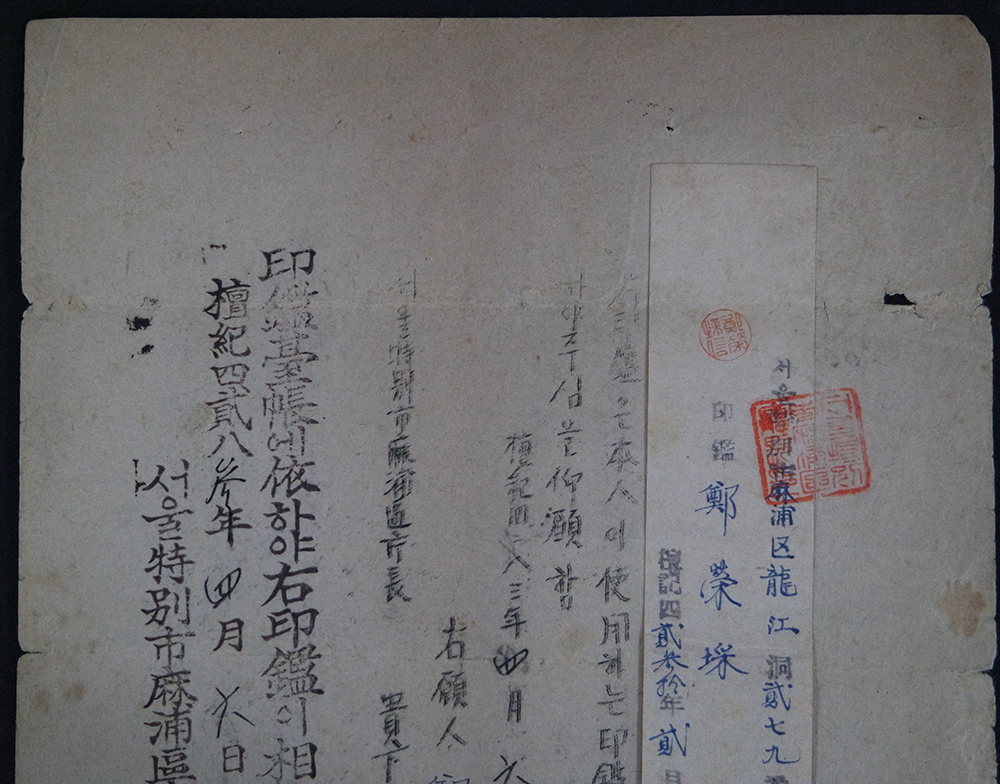 서울特別市麻浦区龍江洞貳七九
印鑑 鄭榮埰
檀記四貳參拾年貳月
은本人이使用하는印鑑
하야주심을仰願함
檀紀四二八三年四月六
右願人
서울特別市麻浦區廳長 貴下
印鑑臺帳에依하야右印鑑이相
檀紀四貳八參年四月六日
서울特別市麻浦區